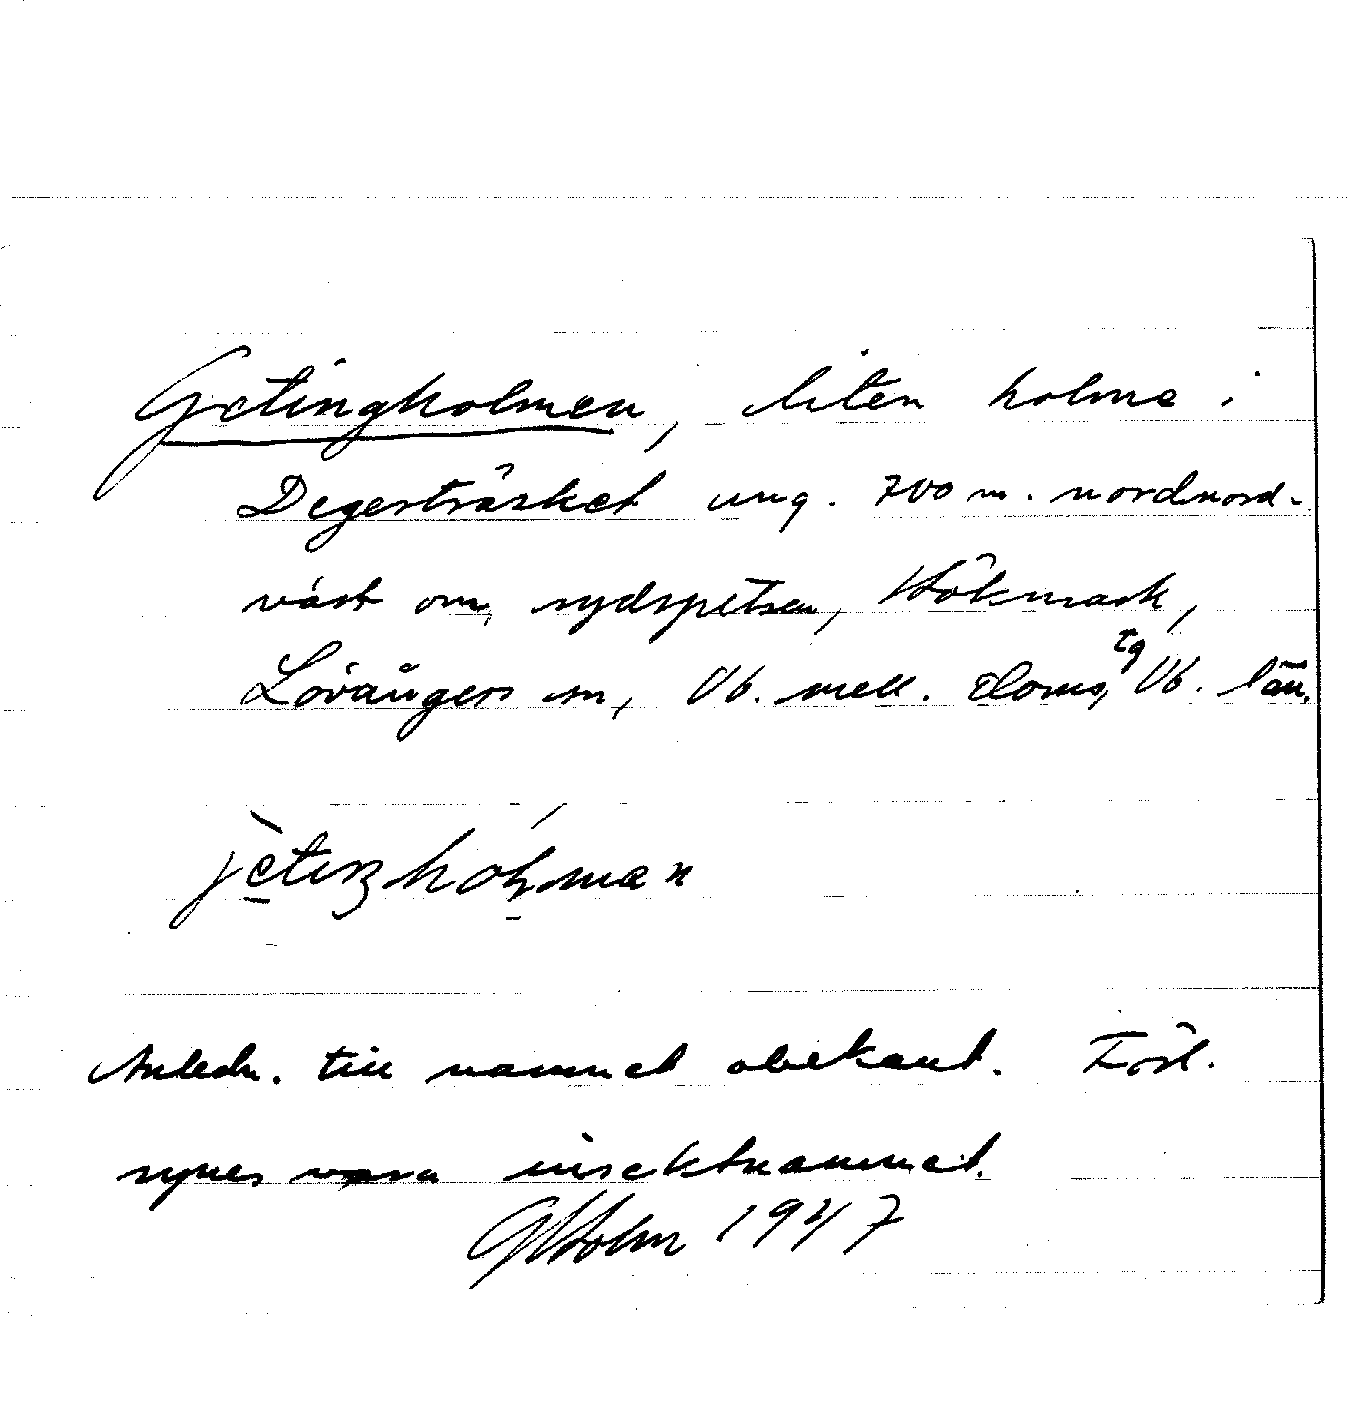 Getingholmen, liten holme i
Degerträsket ung. 700 m. nordnord-
väst om sydspetsen, Hökmark,
Lövångers sn, Vb. mell. doms tg Vb. län.
jètiŋhòḷmɐn
Anledn. till namnet obekant. Förl.
synes vara insektnamnet.
GHolm 1947